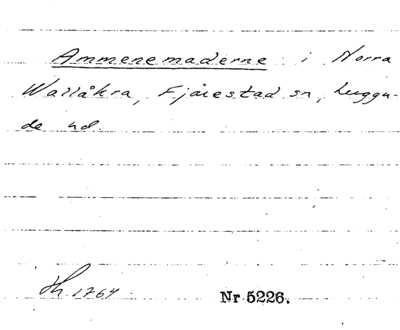 Ammenemaderne i Norra
Wallåkra, Fjärestad sn, Luggu-
de hd.
Jh. 1764 Nr 5226.